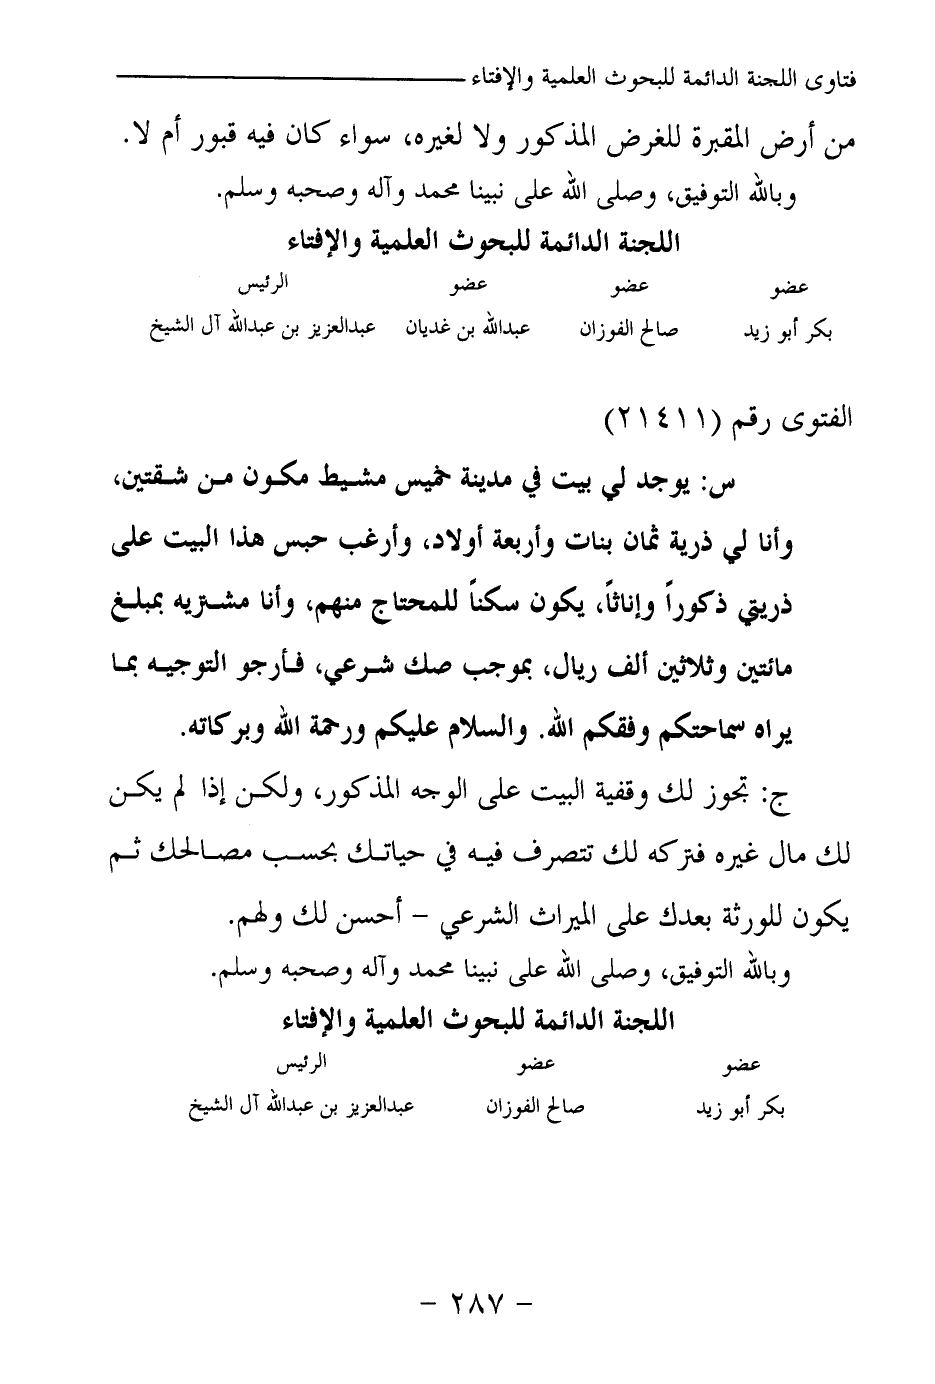 فتاوى اللجنة الدائمة للبحوث العلمية والإفتاء
من أرض المقبرة للغرض المذكور ولا لغيره، سواء كان فيه قبور أم لا.
وبالله التوفيق، وصلى الله على نبينا محمد وآله وصحبه وسلم.
اللجنة الدائمة للبحوث العلمية والإفتاء
عضو عضو عضو الرئيس
بكر أبو زيد صالح الفوزان عبدالله بن غديان عبدالعزيز بن عبدالله آل الشيخ
الفتوى رقم (٢١٤١١)
س: يوجد لي بيت في مدينة خميس مشيط مكون من شقتين،
وأنا لي ذرية ثمان بنات وأربعة أولاد، وأرغب حبس هذا البيت على
ذريتي ذكوراً وإناثاً، يكون سكناً للمحتاج منهم، وأنا مشتريه بمبلغ
مائتين وثلاثين ألف ريال، بموجب صك شرعي، فأرجو التوجيه بما
يراه سماحتكم وفقكم الله. والسلام عليكم ورحمة الله وبركاته.
ج: تجوز لك وقفية البيت على الوجه المذكور، ولكن إذا لم يكن
لك مال غيره فتركه لك تتصرف فيه في حياتك بحسب مصالحك ثم
يكون للورثة بعدك على الميراث الشرعي – أحسن لك ولهم.
وبالله التوفيق، وصلى الله على نبينا محمد وآله وصحبه وسلم.
اللجنة الدائمة للبحوث العلمية والإفتاء
عضو عضو الرئيس
بكر أبو زيد صالح الفوزان عبدالعزيز بن عبدالله آل الشيخ
– ٢٨٧ –